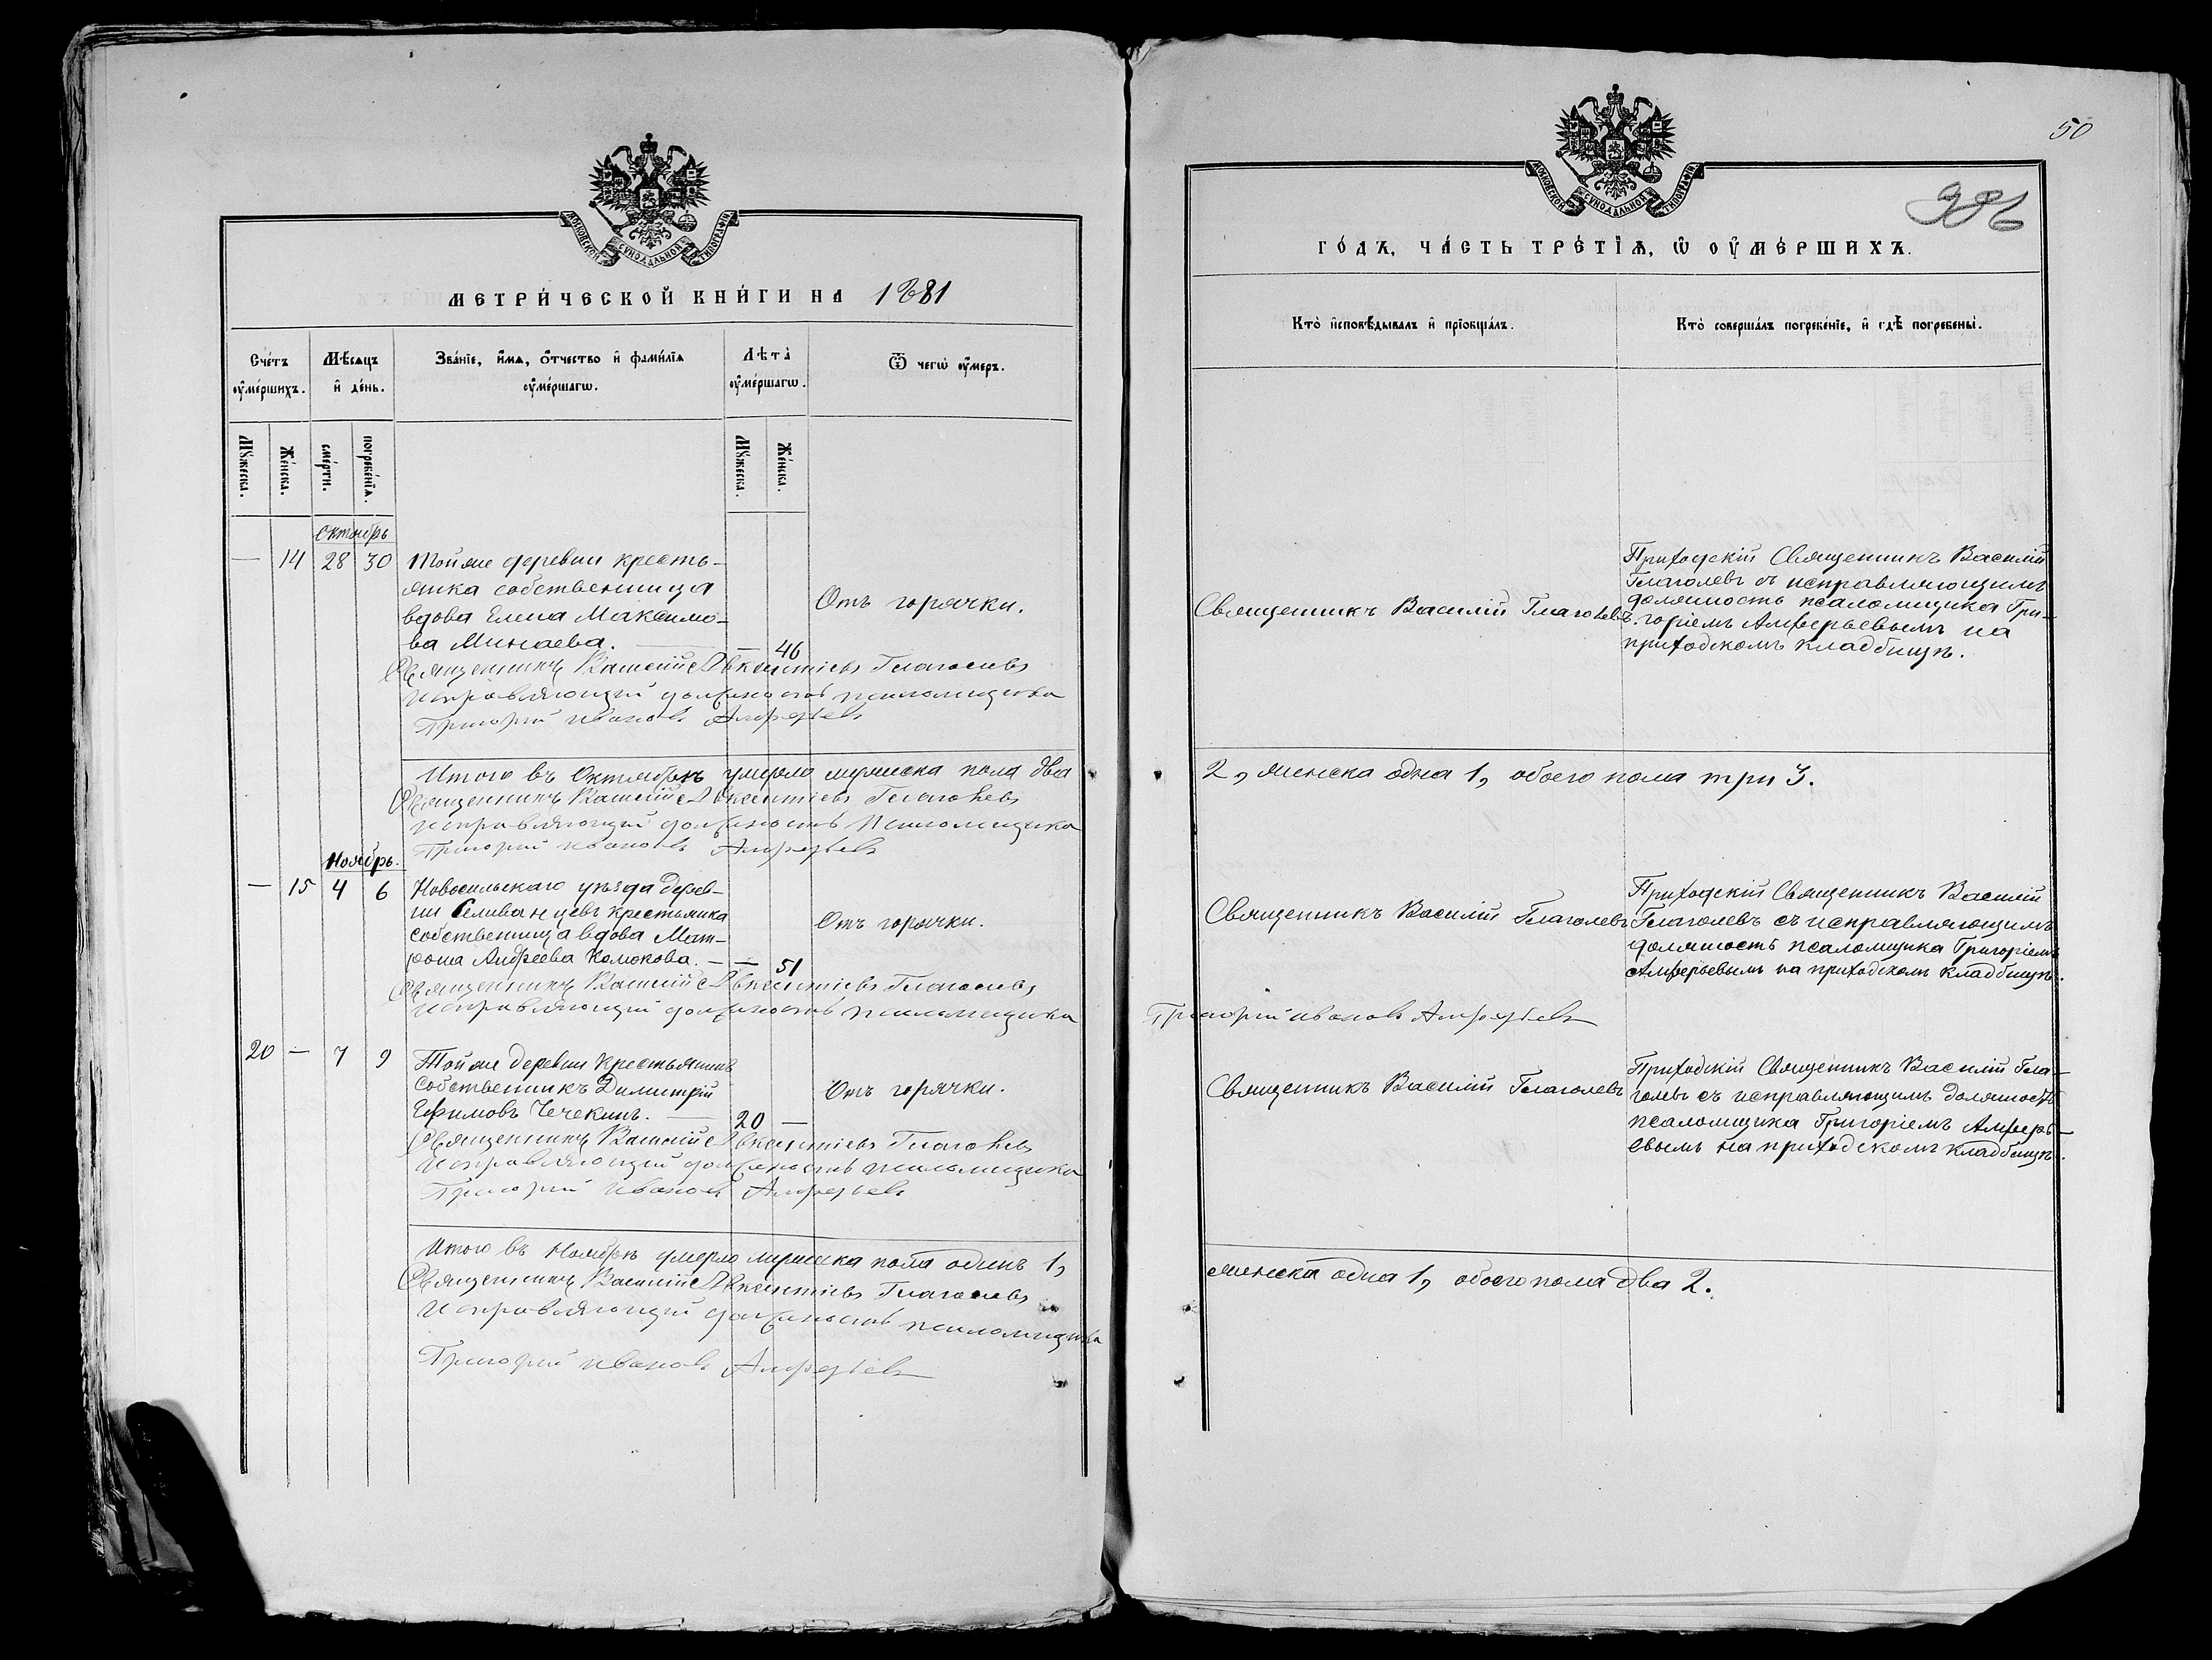 МОСКОВСКОЙ СѴНОДАЛЬНОЙ ТИПОГРАФІИ
МЕТРИ́ЧЕСКОЙ КНИ́ГИ НА 1881
Сче́тъ ᲂу҆ме́ршихъ.
Мѣ́сяцъ и҆ де́нь.
Зва́нїе, и҆́мѧ, ѻ҆́тчество и҆ фами́лїѧ ᲂу҆ме́ршагѡ.
Лѣ́та ᲂу҆ме́ршагѡ.
Ѿ чегѡ̀ ᲂу҆́меръ.
Мꙋ́жеска.
Же́нска.
сме́рти.
погребе́нїѧ.
Мꙋ́жеска.
Же́нска.
Октябрь
— 14 28 30 Тойже деревни кресть-
янка собственница
вдова Елена Максимо-
ва Минаева. — — 46
Отъ горячки.
Священникъ Василій Авксентіевъ Глаголевъ
Исправляющій должность псаломщика
Григорій Ивановъ Алферьевъ
Итого въ Октябрѣ умерло мужеска пола два
Священникъ Василій Авксентіевъ Глаголевъ
Исправляющій должность Псаломщика
Григорій Ивановъ Алферьевъ
Ноябрь.
— 15 4 6 Новосильскаго уѣзда дерев-
ни Селиванцевъ крестьянка
собственница вдова Мат-
рона Андреева Комокова. — — 51
Отъ горячки.
Священникъ Василій Авксентіевъ Глаголевъ
Исправляющій должность псаломщика
20 — 7 9 Тойже деревни Крестьянинъ
собственникъ Димитрій
Ефимовъ Чечекинъ. — 20 —
Отъ горячки.
Священникъ Василій Авксентіевъ Глаголевъ
Исправляющій должность псаломщика
Григорій Ивановъ Алферьевъ
Итого въ Ноябрѣ умерло мужеска пола одинъ 1,
Священникъ Василій Авксентіевъ Глаголевъ
Исправляющій должность псаломщика
Григорій Ивановъ Алферьевъ
50
МОСКОВСКОЙ СѴНОДАЛЬНОЙ ТИПОГРАФІИ
ГО́ДЪ, ЧА́СТЬ ТРЕ́ТЇѦ, Ѡ҆ ОУ҆МЕ́РШИХЪ.
Кто̀ и҆сповѣ́дывалъ и҆ прїобща́лъ.
Кто̀ соверша́лъ погребе́нїе, и҆ гдѣ̀ погребены̀.
Священникъ Василій Глаголевъ.
Приходскій Священникъ Василій
Глаголевъ съ исправляющимъ
должность псаломщика Гри-
горіемъ Алферьевымъ на
приходскомъ кладбищѣ.
2, женска одна 1, обоего пола три 3.
Священникъ Василій Глаголевъ
Приходскій Священникъ Василій
Глаголевъ съ исправляющимъ
должность псаломщика Григоріемъ
Алферьевымъ на приходскомъ кладбищѣ.
Григорій Ивановъ Алферьевъ
Священникъ Василій Глаголевъ
Приходскій Священникъ Василій Гла-
голевъ съ исправляющимъ должность
псаломщика Григоріемъ Алферь-
евымъ на приходскомъ кладбищѣ.
женска одна 1, обоего пола два 2.